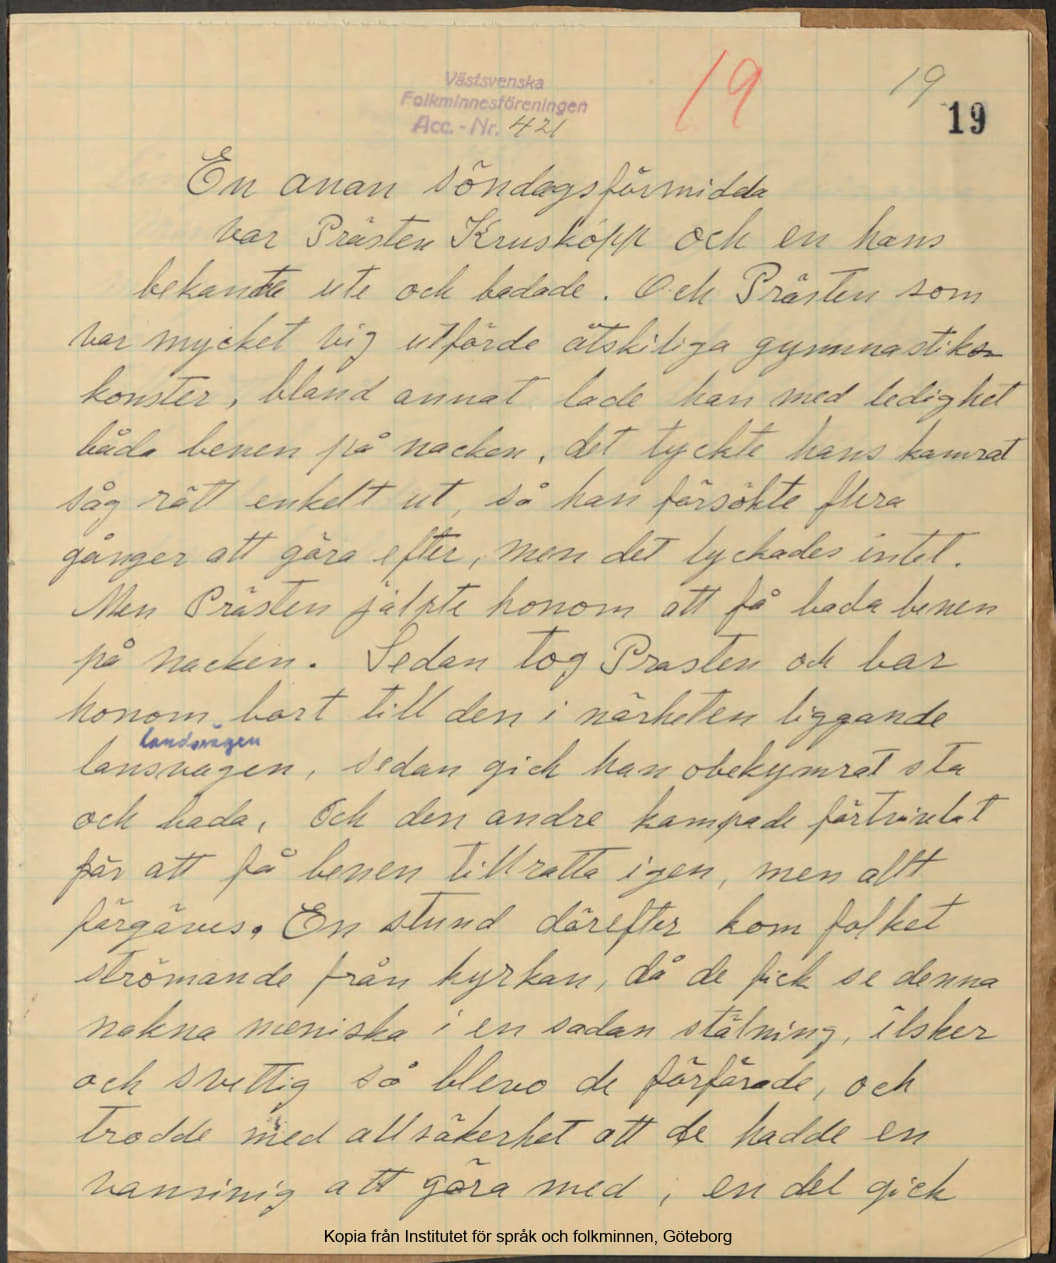 Västsvenska
Folkminnesföreningen
Acc.-Nr. 421
19
19
19
En anan söndagsförmidda
var Prästen Kruskopp och en hans
bekante ute och badade. Och Prästen som
var mycket vig utförde åtskiliga gymnastik
konster, bland annat lade han med ledighet
båda benen på nacken, det tyckte hans kamrat
såg rätt enkelt ut, så han försökte flera
gånger att göra efter, men det lyckades intet.
Men Prästen jälpte honom att få bada benen
på nacken. Sedan tog Prasten och bar
honom bort till den i närheten liggande
landsvägen
lansvagen, sedan gick han obekymrat sta
och bada, Och den andre kampade förtvivlat
för att få benen tillratta igen, men allt
förgäves. En stund därefter kom folket
strömande från kyrkan, då de fick se denna
nakna meniska i en sadan stälning, ilsker
och svettig så blevo de förfärade, och
trodde med all säkerhet att de hadde en
vansinig att göra med, en del gick
Kopia från Institutet för språk och folkminnen, Göteborg